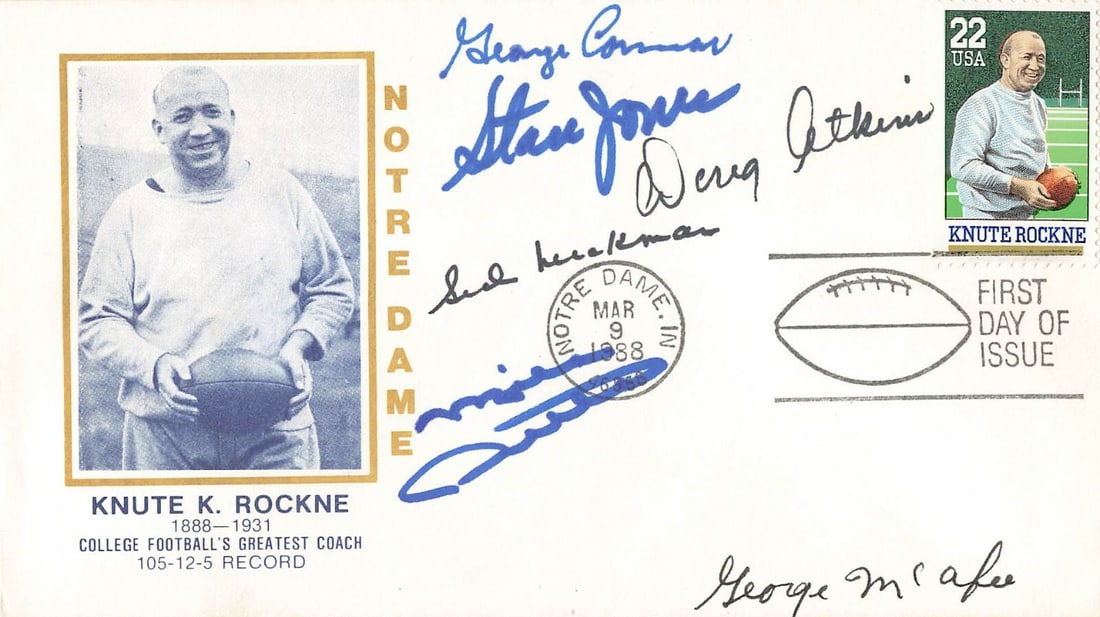 NOTRE DAME
KNUTE K. ROCKNE
1888—1931
COLLEGE FOOTBALL'S GREATEST COACH
105-12-5 RECORD
George Connor
Stan Jones
Doug Atkins
Sid Luckman
George McAfee
22
USA
KNUTE ROCKNE
NOTRE DAME, IN
MAR
9
1988
FIRST
DAY OF
ISSUE